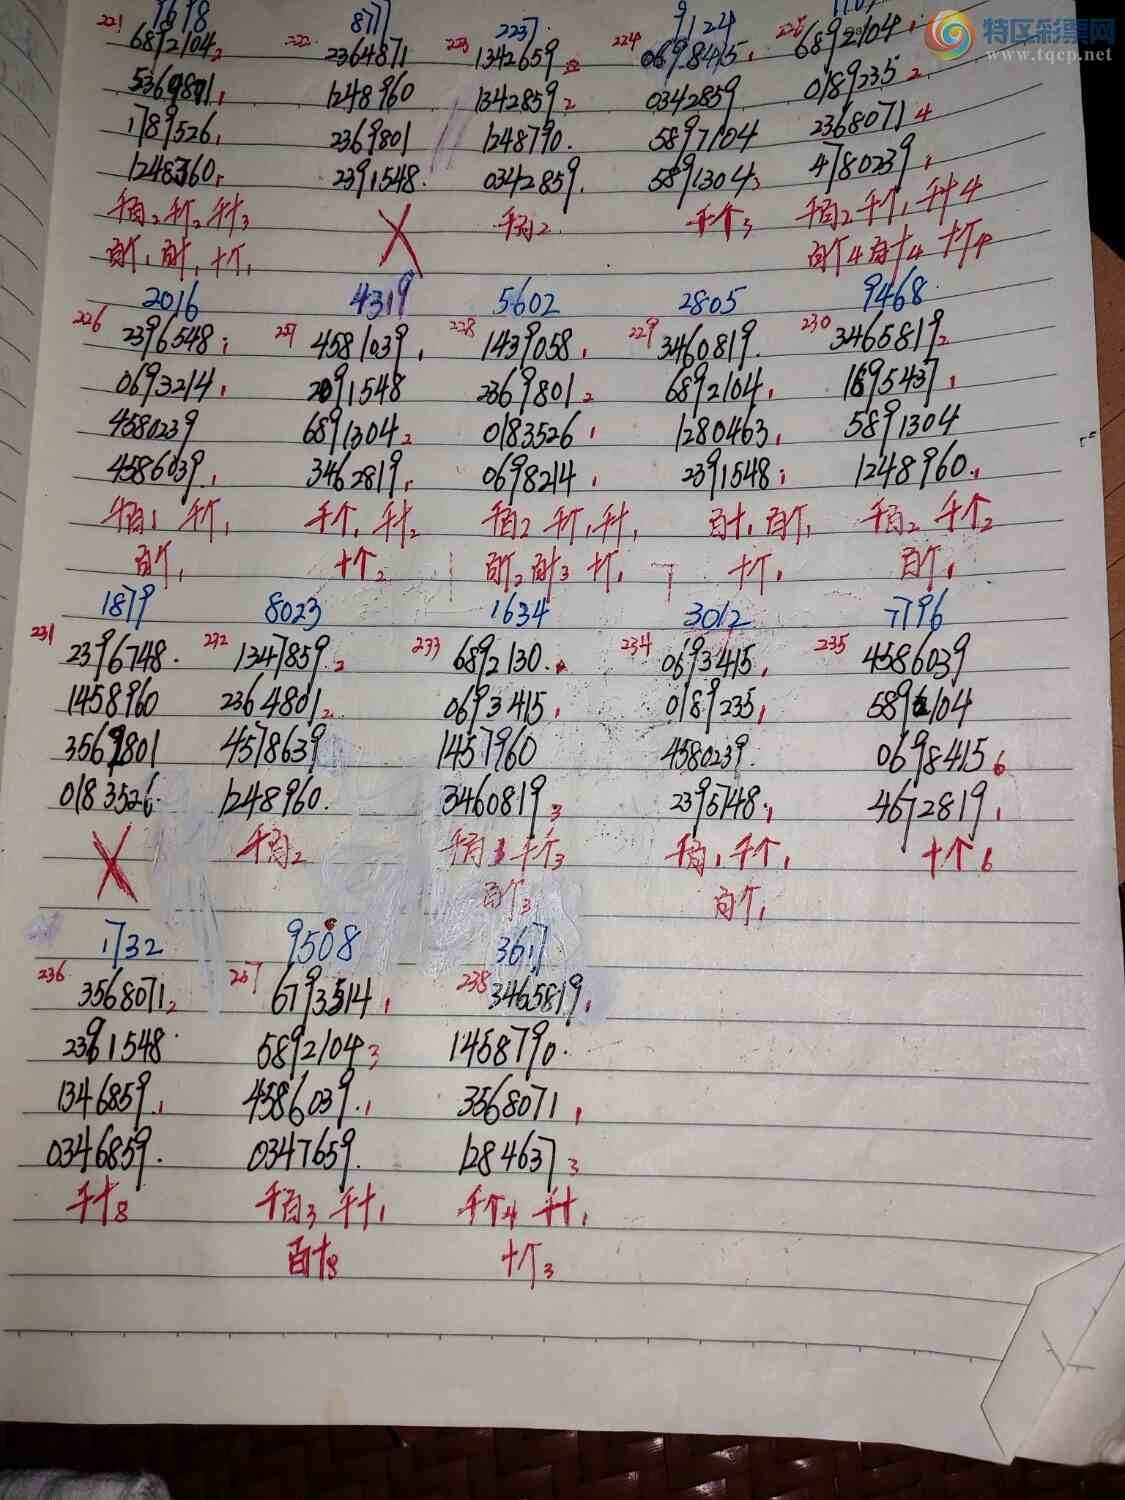 特区彩票网
www.tqcp.net
1618 8711 2237 9124
221 222 223 224 225
6892104 2 2364871 1342659 0698415 1 6892104 1
5369801 1 1248960 1342859 2 0342859 0189235 2
1789526 1 2369801 1248790 5897104 2368071 4
1248360 1 2391548 0342859 5891304 3 4780239 1
千百2 千个2 千十3 X 千百2 千个3 千百2 千个1 千十4
百个1 百十1 十个1 百个4 百十4 十个4
2016 4319 5602 2805 9468
226 227 228 229 230
2396548 1 4581039 1 1439058 1 3460819 3465819 2
0693214 1 2091548 2369801 2 6892104 1 1895437 1
4580239 6891304 2 0183526 1 1280463 1 5891304
4586039 1 3462819 1 0698214 1 2391548 1 1248960 1
千百1 千个1 千个1 千十2 千百2 千个1 千十1 百十1 百个1 千百2 千个2
百个1 十个2 百个2 百十3 十个1 十个1 百个1
1879 8023 1634 3012 7796
231 232 233 234 235
2396748 1347859 2 6892130 0693415 1 4586039
1458960 2364801 2 0693415 1 0189235 1 5892104
3569801 4578639 1457960 4580239 0698415 6
0183526 1248960 3460819 3 2395748 1 4672819 1
X 千百2 千百3 千个3 千百1 千个1 十个6
百个3 百个1
1732 9508 3617
236 237 238
3568071 2 6793514 1 3465819 1
2391548 5892104 3 1458790
1346859 1 4586039 1 3568071 1
0346859 0347659 1284637 3
千十8 千百3 千十1 千个4 千十1
百十8 十个3